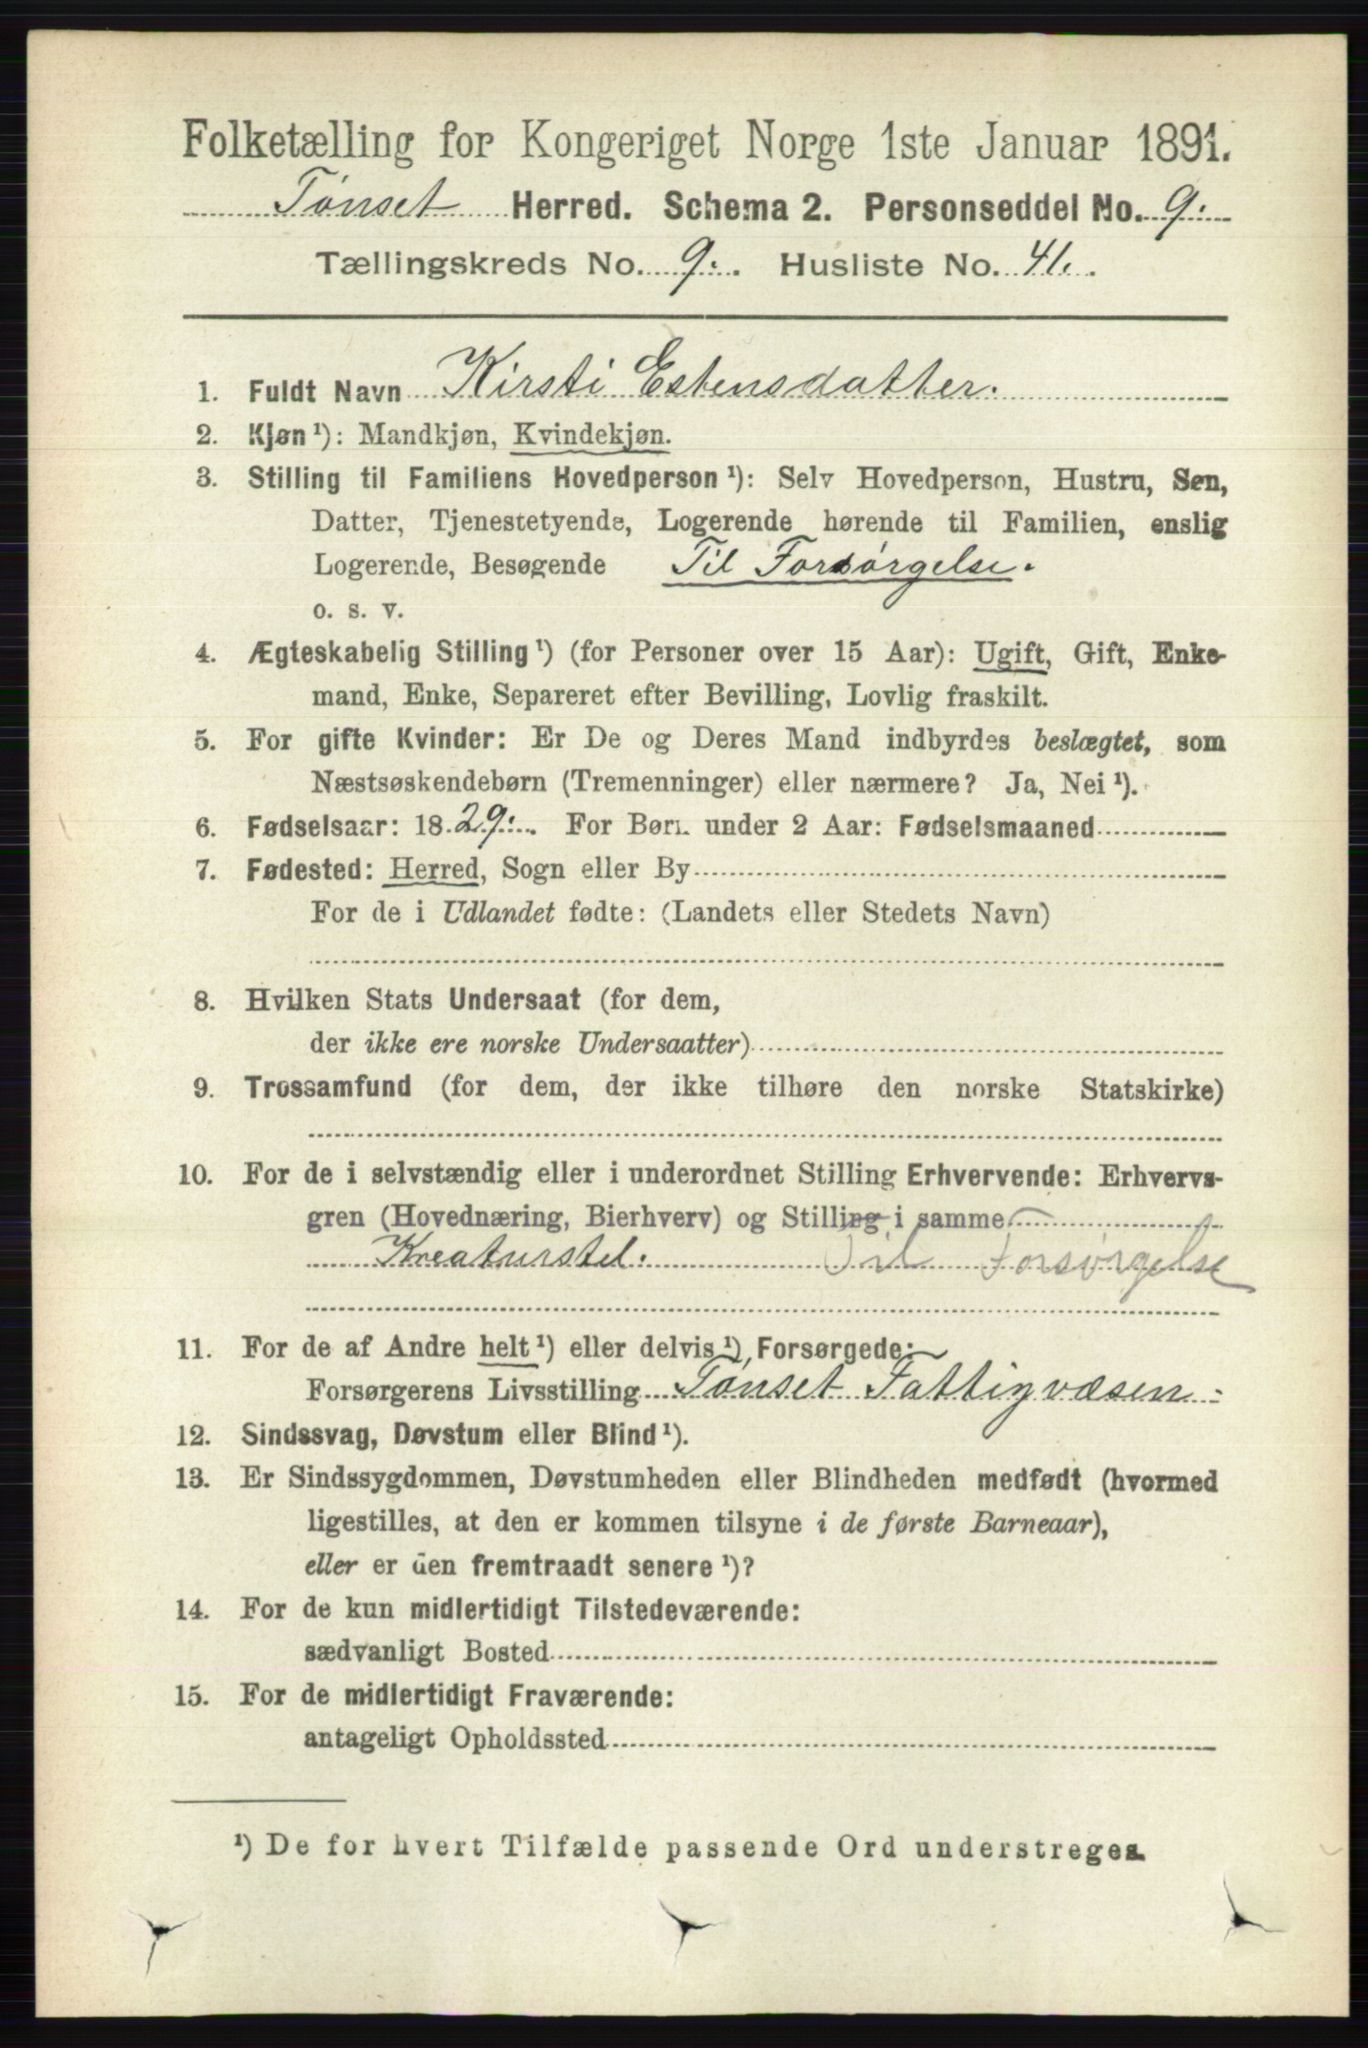 Folketælling for Kongeriget Norge 1ste Januar 1891.
Tønset Herred. Schema 2. Personseddel No. 9.
Tællingskreds No. 9. Husliste No. 41.
1. Fuldt Navn Kirsti Estensdatter.
2. Kjøn¹): Mandkjøn, Kvindekjøn.
3. Stilling til Familiens Hovedperson¹): Selv Hovedperson, Hustru, Søn,
Datter, Tjenestetyende, Logerende hørende til Familien, enslig
Logerende, Besøgende Til Forsørgelse.
o. s. v.
4. Ægteskabelig Stilling¹) (for Personer over 15 Aar): Ugift, Gift, Enke-
mand, Enke, Separeret efter Bevilling, Lovlig fraskilt.
5. For gifte Kvinder: Er De og Deres Mand indbyrdes beslægtet, som
Næstsøskendebørn (Tremenninger) eller nærmere? Ja, Nei¹).
6. Fødselsaar: 1829. For Børn under 2 Aar: Fødselsmaaned
7. Fødested: Herred, Sogn eller By
For de i Udlandet fødte: (Landets eller Stedets Navn)
8. Hvilken Stats Undersaat (for dem,
der ikke ere norske Undersaatter)
9. Trossamfund (for dem, der ikke tilhøre den norske Statskirke)
10. For de i selvstændig eller i underordnet Stilling Erhvervende: Erhvervs-
gren (Hovednæring, Bierhverv) og Stilling i samme
Kreaturstel. Til Forsørgelse
11. For de af Andre helt¹) eller delvis¹) Forsørgede:
Forsørgerens Livsstilling Tønset Fattigvæsen.
12. Sindssvag, Døvstum eller Blind¹).
13. Er Sindssygdommen, Døvstumheden eller Blindheden medfødt (hvormed
ligestilles, at den er kommen tilsyne i de første Barneaar),
eller er den fremtraadt senere¹)?
14. For de kun midlertidigt Tilstedeværende:
sædvanligt Bosted
15. For de midlertidigt Fraværende:
antageligt Opholdssted
¹) De for hvert Tilfælde passende Ord understreges.